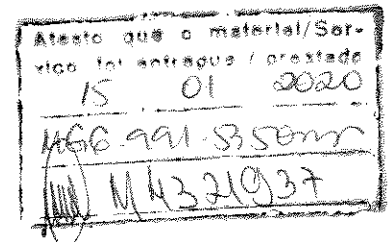 Atesto que o material/Ser-
viço foi entregue / prestado
15 01 2020
M 4321937